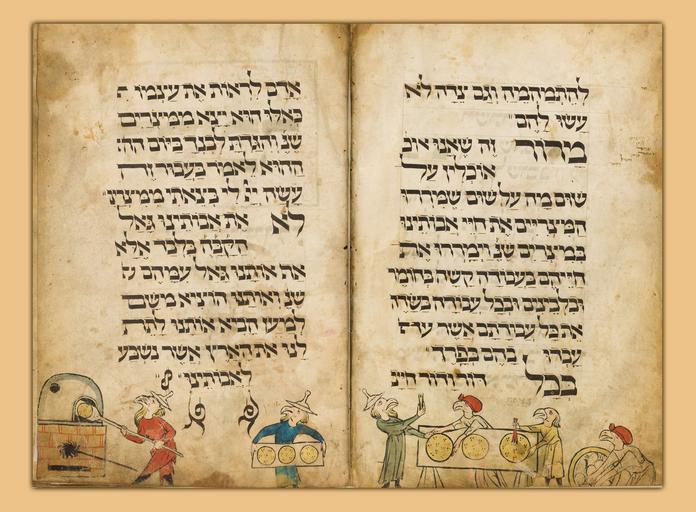 להתמהמה וגם צדה לא
עשו להם
מרור זה שאנו או
אוכלין על
שום מה על שום שמררו
המצריים את חיי אבותינו
במצרים שנ וימררו את
חייהם בעבודה קשה בחומר
ובלבנים ובכל עבודה בשדה
את כל עבודתם אשר
עבדו בהם בפרך
בכל דור ודור חייב
אדם לראות את עצמו
כאלו הוא יצא ממצרים
שנ והגדת לבנך ביום
ההוא לאמר בעבור זה
עשה יי לי בצאתי ממצרים
לא את אבותינו גאל
הקבה בלבד אלא
אף אותנו גאל עמהם
שנ ואותנו הוציא משם
למען הביא אותנו לתת
לנו את הארץ אשר נשבע
לאבותינו